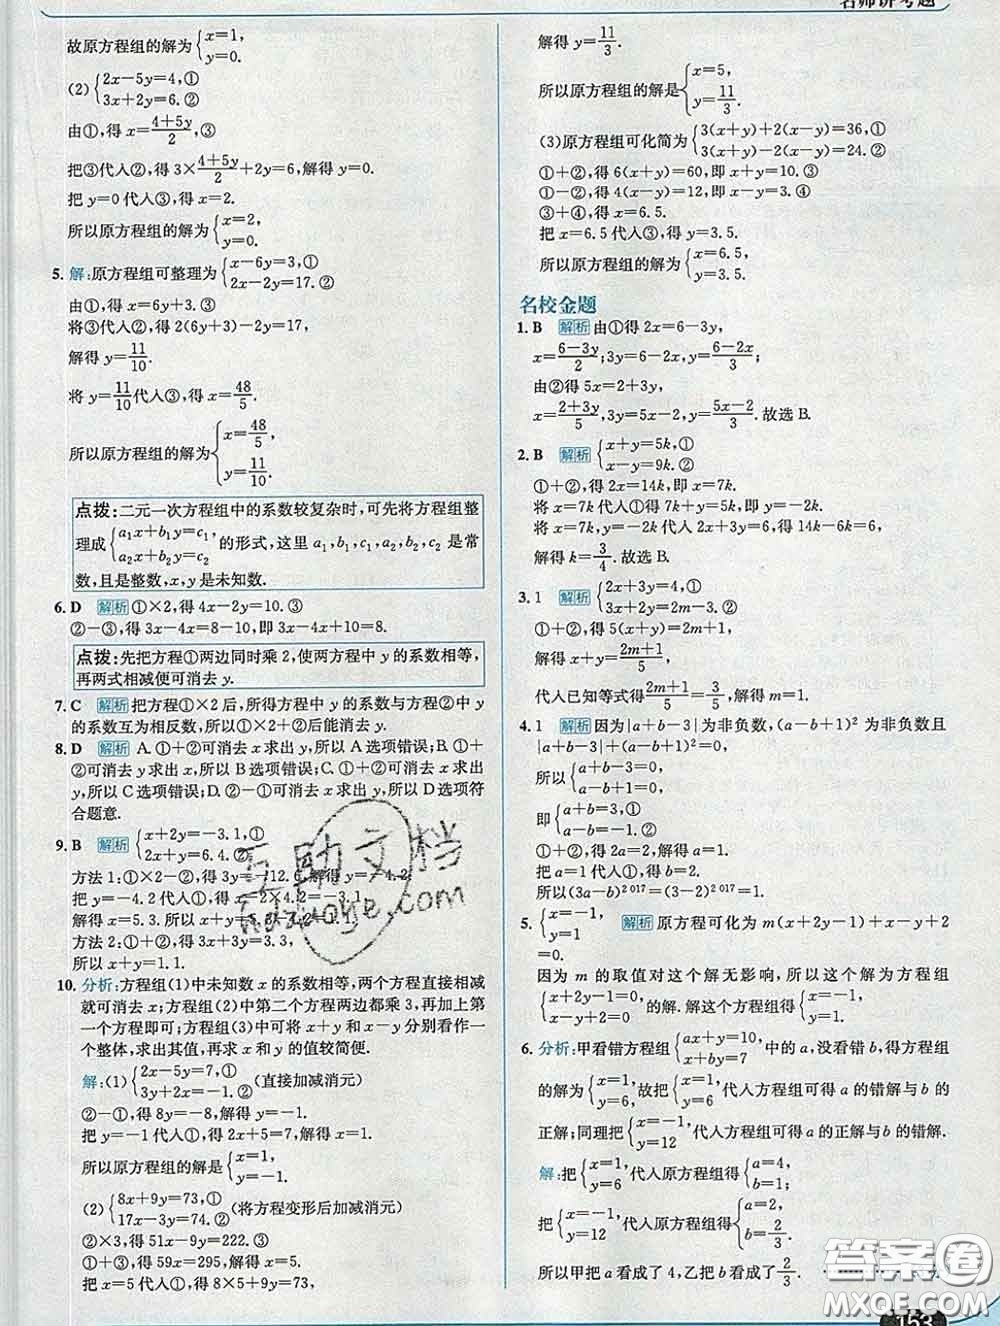 名师讲考题
故原方程组的解为{x=1, y=0.
(2){2x-5y=4,① 3x+2y=6.②
由①,得 x=(4+5y)/2,③
把③代入②,得 3×(4+5y)/2+2y=6,解得 y=0.
把 y=0 代入③,得 x=2.
所以原方程组的解为{x=2, y=0.
5. 解:原方程组可整理为{x-6y=3,① 2x-2y=17.②
由①,得 x=6y+3.③
将③代入②,得 2(6y+3)-2y=17,
解得 y=11/10.
将 y=11/10代入③,得 x=48/5.
所以原方程组的解为{x=48/5, y=11/10.
点拨:二元一次方程组中的系数较复杂时,可先将方程组整
理成{a₁x+b₁y=c₁, a₂x+b₂y=c₂ 的形式,这里 a₁,b₁,c₁,a₂,b₂,c₂ 是常
数,且是整数,x,y 是未知数.
6. D 解析 ①×2,得 4x-2y=10.③
②-③,得 3x-4x=8-10,即 3x-4x+10=8.
点拨:先把方程①两边同时乘 2,使两方程中 y 的系数相等,
再两式相减便可消去 y.
7. C 解析 把方程①×2 后,所得方程中 y 的系数与方程②中 y
的系数互为相反数,所以①×2+②后能消去 y.
8. D 解析 A.①+②可消去 x 求出 y,所以 A 选项错误;B.①+
②可消去 y求出 x,所以 B 选项错误;C.①+②可消去 x 求出
y,所以 C 选项错误;D.②-①可消去 x求出 y,所以 D选项符
合题意.
9. B 解析 {x+2y=-3.1,① 2x+y=6.4.②
方法 1:①×2-②,得 3y=-12.6,解得 y=-4.2.
把 y=-4.2 代入①,得 x+2×
解得 x=5.3.所以 x+y=
方法 2:①+②,得 3x+3y=3.3,
所以 x+y=1.1.
10. 分析:方程组(1)中未知数 x 的系数相等,两个方程直接相减
就可消去 x;方程组(2)中第二个方程两边都乘 3,再加上第
一个方程即可;方程组(3)中可将 x+y 和 x-y 分别看作一
个整体,求出其值,再求 x 和 y 的值较简便.
解:(1){2x-5y=7,① 2x+3y=-1.②(直接加减消元)
②-①,得 8y=-8,解得 y=-1.
把 y=-1 代入①,得 2x+5=7,解得 x=1.
所以原方程组的解是{x=1, y=-1.
(2){8x+9y=73,① 17x-3y=74.②(将方程变形后加减消元)
②×3,得 51x-9y=222.③
①+③,得 59x=295,解得 x=5.
把 x=5 代入①,得 8×5+9y=73,
解得 y=11/3.
所以原方程组的解是{x=5, y=11/3.
(3)原方程组可化简为{3(x+y)+2(x-y)=36,① 3(x+y)-2(x-y)=24.②
①+②,得 6(x+y)=60,即 x+y=10.③
①-②,得 4(x-y)=12,即 x-y=3.④
③+④,得 x=6.5.
把 x=6.5 代入③,得 y=3.5.
所以原方程组的解为{x=6.5, y=3.5.
名校金题
1. B 解析 由①得 2x=6-3y,
x=(6-3y)/2;3y=6-2x,y=(6-2x)/3;
由②得 5x=2+3y,
x=(2+3y)/5,3y=5x-2,y=(5x-2)/3.故选 B.
2. B 解析 {x+y=5k,① x-y=9k.②
①+②,得 2x=14k,即 x=7k.
将 x=7k 代入①得 7k+y=5k,即 y=-2k.
将 x=7k,y=-2k 代入 2x+3y=6,得 14k-6k=6,
解得 k=3/4.故选 B.
3. 1 解析 {2x+3y=4,① 3x+2y=2m-3.②
①+②,得 5(x+y)=2m+1,
解得 x+y=(2m+1)/5,
代入已知等式得(2m+1)/5=3/5,解得 m=1.
4. 1 解析 因为|a+b-3|为非负数,(a-b+1)² 为非负数且
|a+b-3|+(a-b+1)²=0,
所以{a+b-3=0, a-b+1=0.
即{a+b=3,① a-b=-1.②
①+②,得 2a=2,解得 a=1.
把 a=1 代入①,得 b=2.
所以(3a-b)²⁰¹⁷=(3-2)²⁰¹⁷=1.
5. {x=-1, y=1 解析 原方程可化为 m(x+2y-1)+x-y+2
=0.
因为 m 的取值对这个解无影响,所以这个解为方程组
{x+2y-1=0, x-y+2=0 的解.解这个方程组得{x=-1, y=1.
6. 分析:甲看错方程组{ax+y=10, x+by=7 中的 a,没看错 b,得方程组
的解为{x=1, y=6,故把{x=1, y=6 代入方程组可得 a 的错解与 b 的
正解;同理把{x=-1, y=12 代入方程组可得 a 的正解与 b 的错解.
解:把{x=1, y=6 代入原方程组得{a=4, b=1.
把{x=-1, y=12 代入原方程组得{a=2, b=2/3.
所以甲把 a 看成了 4,乙把 b 看成了 2/3.
互助文档
hdzuoye.com
答案圈
MXQE.COM
153